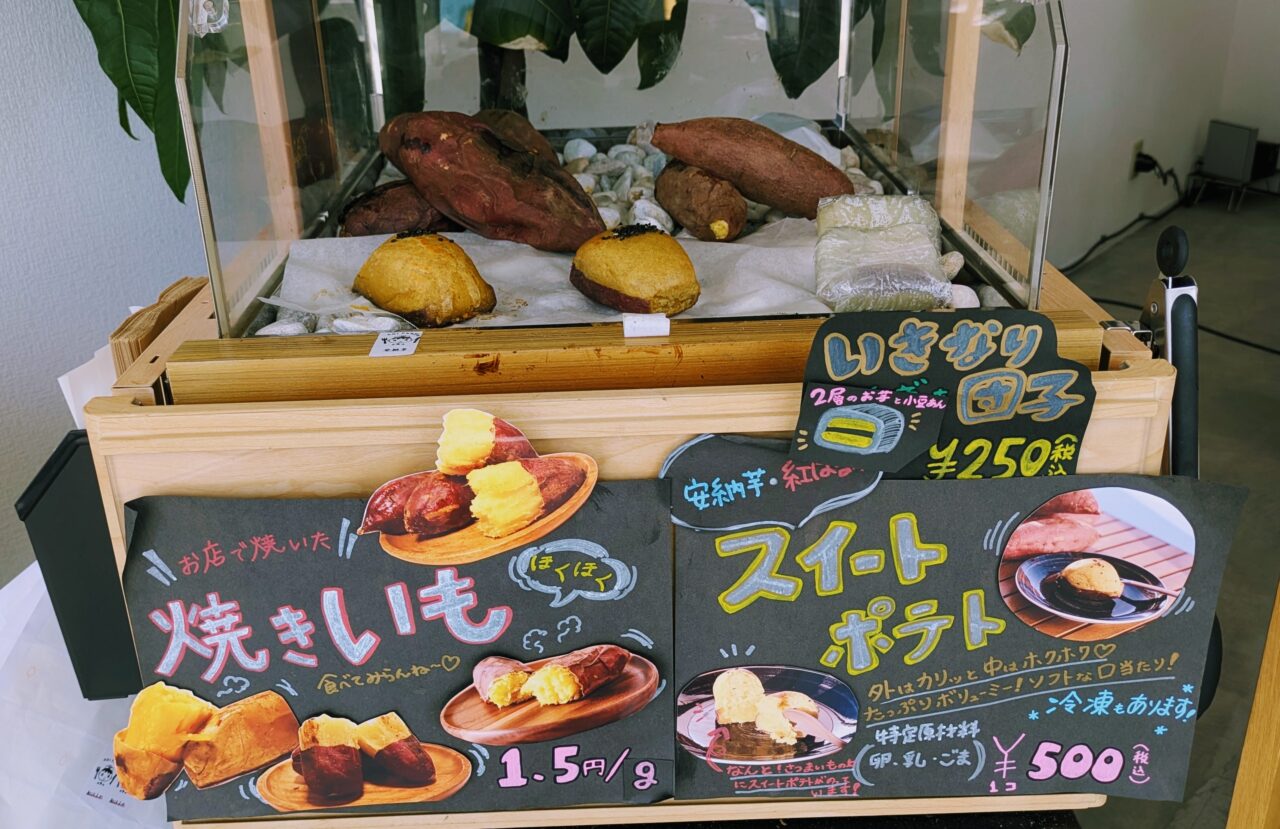 いきなり
団子
2層のお芋と小豆あん
¥250(税込
安納芋・紅はるか
お店で焼いた
焼きいも
ほくほく
食べてみらんね〜♡
1.5円/g
スイート
ポテト
外はカリッと中はホクホク♡
たっぷりボリューミー!ソフトな口当たり!
冷凍もあります!
特定原材料
(卵・乳・ごま)
¥500(税込)
1コ
なんと!さつまいもの上
にスイートポテトがのって
います!